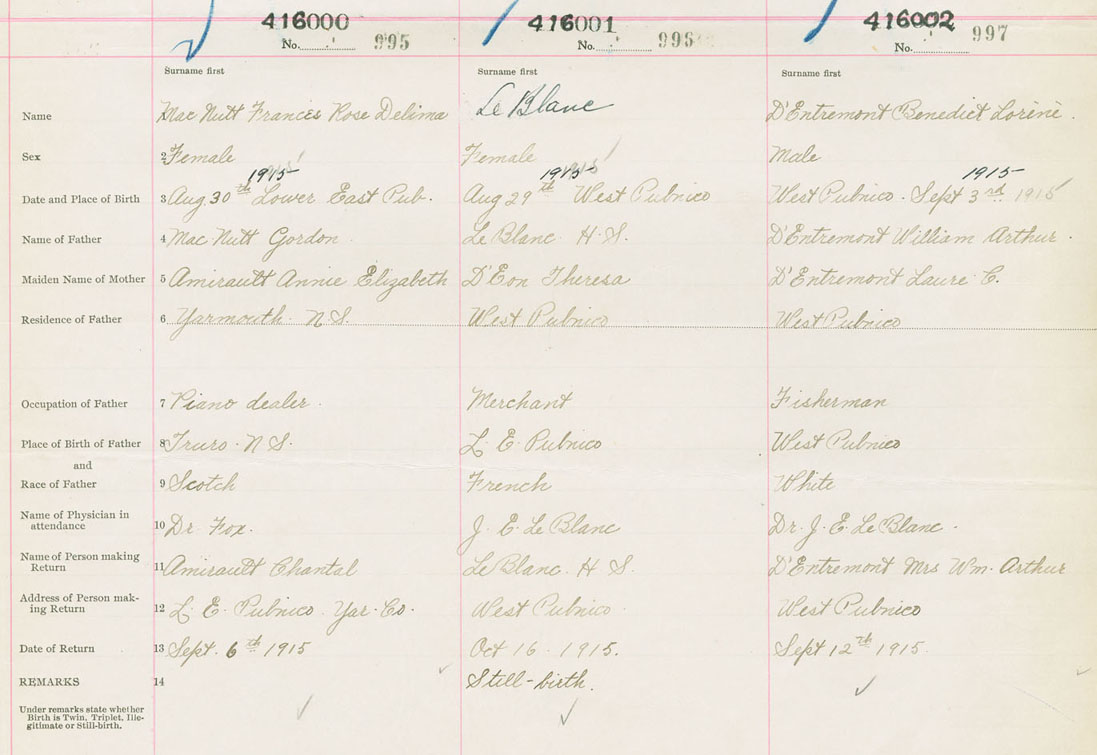 416000 416001 416002
No. 995 No. 996 No. 997
Surname first Surname first Surname first
Name Mac Nutt Frances Rose Delima Le Blanc D'Entremont Benedict Lorène.
Sex 2 Female Female Male
1915 1915 1915
Date and Place of Birth 3 Aug 30th Lower East Pub. Aug 29th West Pubnico West Pubnico. Sept 3rd 1915
Name of Father 4 Mac Nutt Gordon Le Blanc H. S. D'Entremont William Arthur.
Maiden Name of Mother 5 Amirault Annie Elizabeth D'Eon Theresa D'Entremont Laure C.
Residence of Father 6 Yarmouth N S. West Pubnico West Pubnico
Occupation of Father 7 Piano dealer. Merchant Fisherman
Place of Birth of Father 8 Truro. N S. L. E. Pubnico West Pubnico
and
Race of Father 9 Scotch French White
Name of Physician in
attendance 10 Dr. Fox. J. E Le Blanc Dr. J. E. Le Blanc.
Name of Person making
Return 11 Amirault Chantal Le Blanc. H S. D'Entremont Mrs Wm. Arthur
Address of Person mak-
ing Return 12 L. E. Pubnico. Yar. Co. West Pubnico West Pubnico
Date of Return 13 Sept. 6th 1915 Oct 16. 1915. Sept 12th 1915.
REMARKS 14 Still-birth.
Under remarks state whether
Birth is Twin, Triplet, Ille-
gitimate or Still-birth.